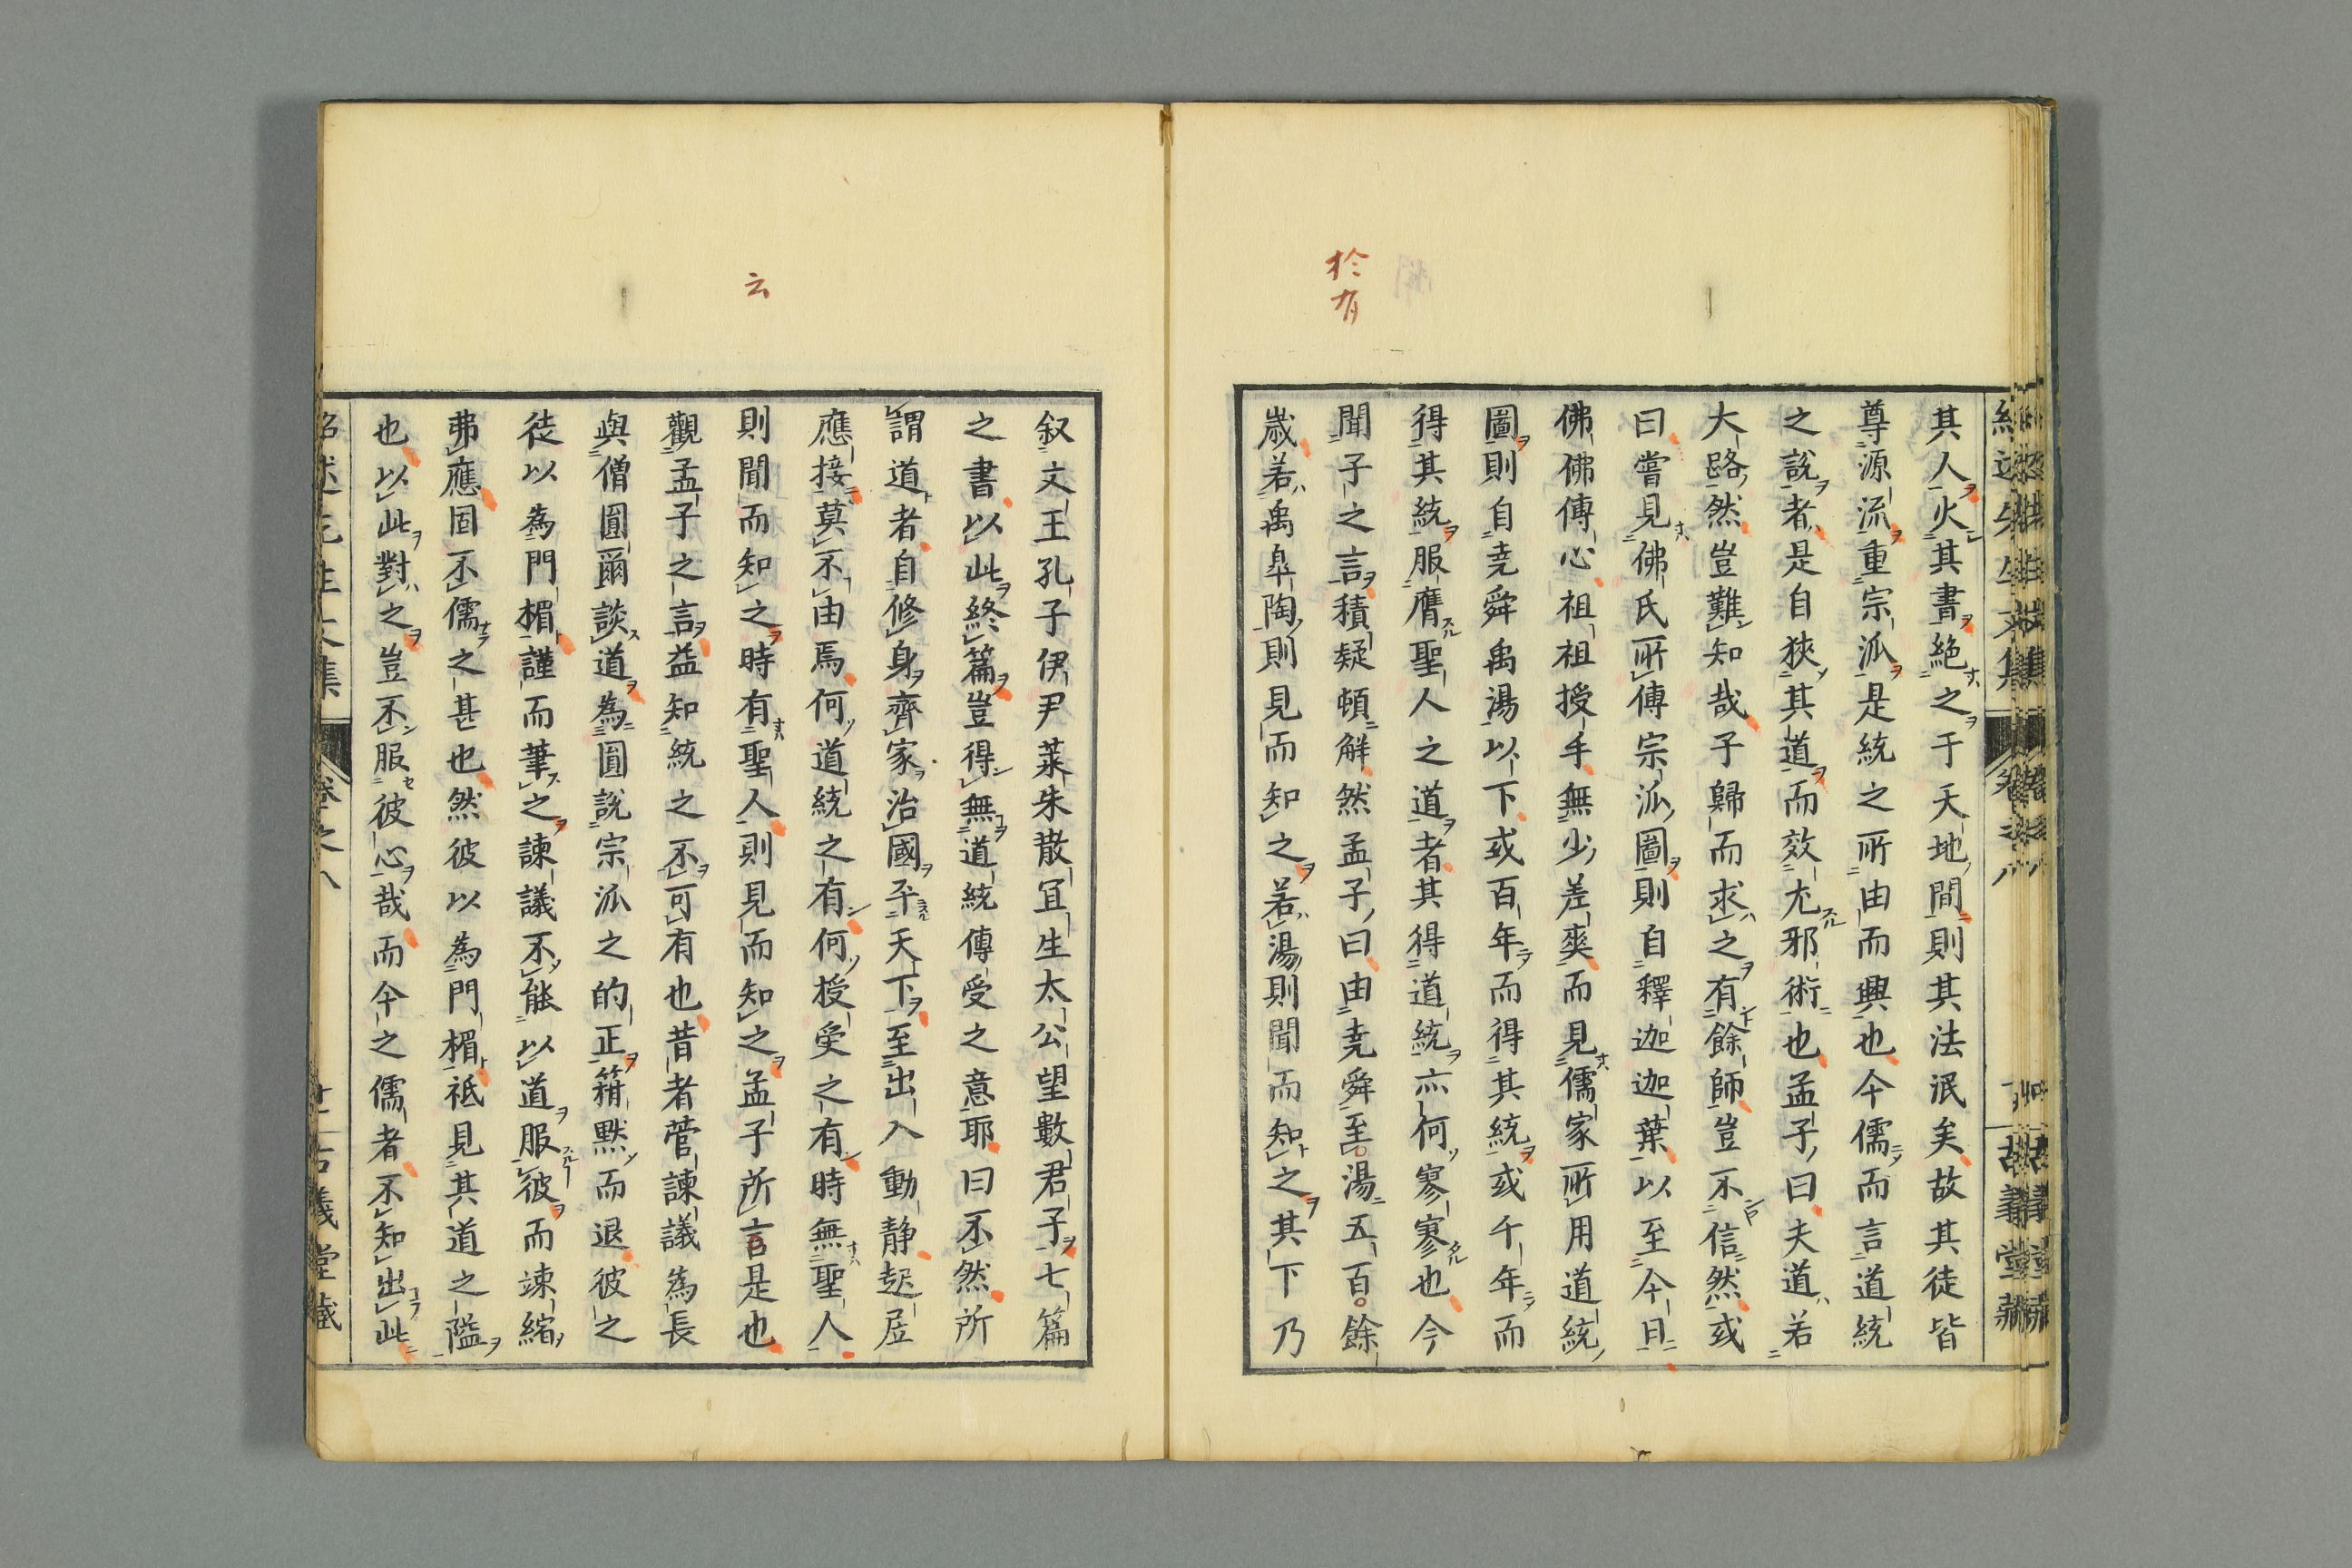 於
有
其人火其書絶之于天地間則其法泯矣故其徒皆
尊源流重宗派是統之所由而興也今儒而言道統
之説者是自狹其道而效尤邪術也孟子曰夫道若
大路然豈難知哉子歸而求之有餘師豈不信然或
曰嘗見佛氏所傳宗派圖則自釋迦迦葉以至今日
佛佛傳心祖祖授手無少差爽而見儒家所用道統
圖則自堯舜禹湯以下或百年而得其統或千年而
得其統服膺聖人之道者其得道統亦何寥寥也今
聞子之言積疑頓解然孟子曰由堯舜至湯五百餘
歳若禹皐陶則見而知之若湯則聞而知之其下乃
云
叙文王孔子伊尹萊朱散冝生太公望數君子七篇
之書以此終篇豈得無道統傳受之意耶曰不然所
謂道者自修身齊家治國平天下至出入動静起居
應接莫不由焉何道統之有何授受之有時無聖人
則聞而知之時有聖人則見而知之孟子所言是也
觀孟子之言益知統之不可有也昔者菅諫議為長
與僧圓爾談道為圓説宗派之的正箝黙而退彼之
徒以為門楣謹而筆之諫議不能以道服彼而竦縮
弗應固不儒之甚也然彼以為門楣祗見其道之隘
也以此對之豈不服彼心哉而今之儒者不知出此
紹述先生文集
卷之八
古義堂藏